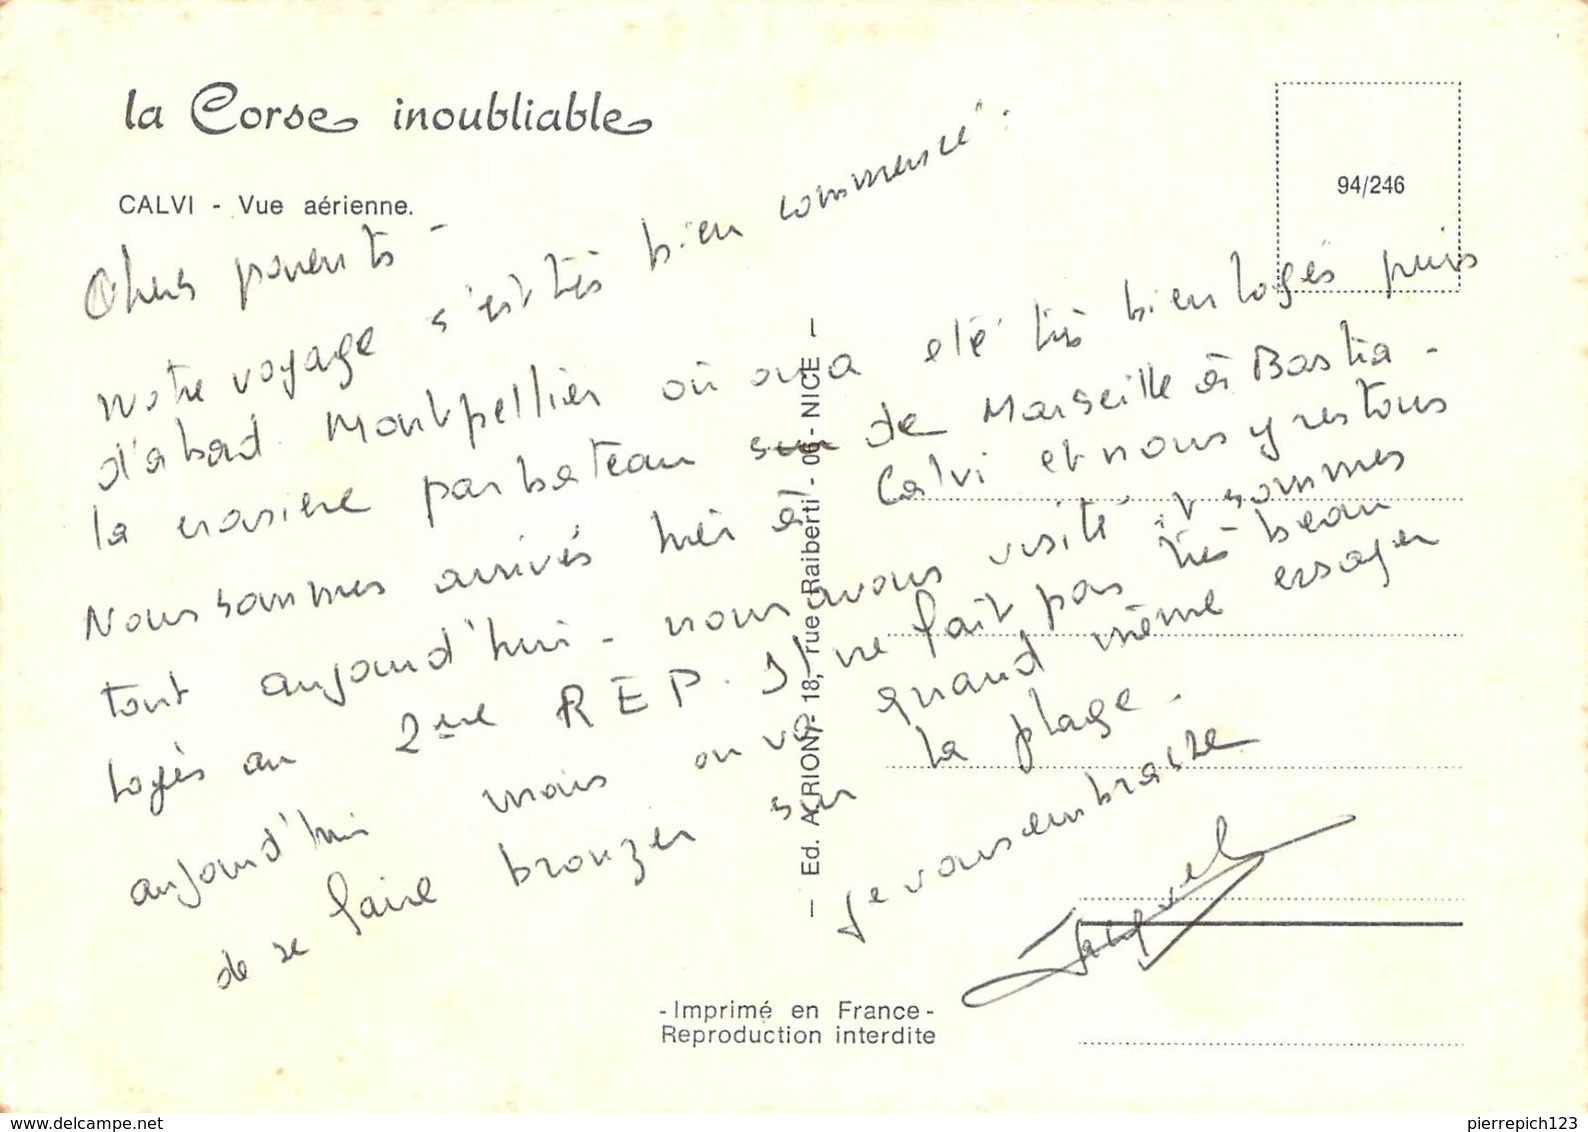 la Corse inoubliable
94/246
CALVI - Vue aérienne.
Chers parents -
Notre voyage s'est très bien commencé :
d'abord Montpellier où on a été très bien logés puis
la croisière par bateau sur de Marseille à Bastia -
Nous sommes arrivés hier à Calvi et nous y restons
tout aujourd'hui - nous avons visité et sommes
logés au 2ème REP. Il ne fait pas très beau
aujourd'hui mais on va quand même essayer
de se faire bronzer sur la plage -
Je vous embrasse
- Ed. A. RION, - 18, rue Raiberti - 06 - NICE -
- Imprimé en France -
Reproduction interdite
delcampe.net
pierrepich123